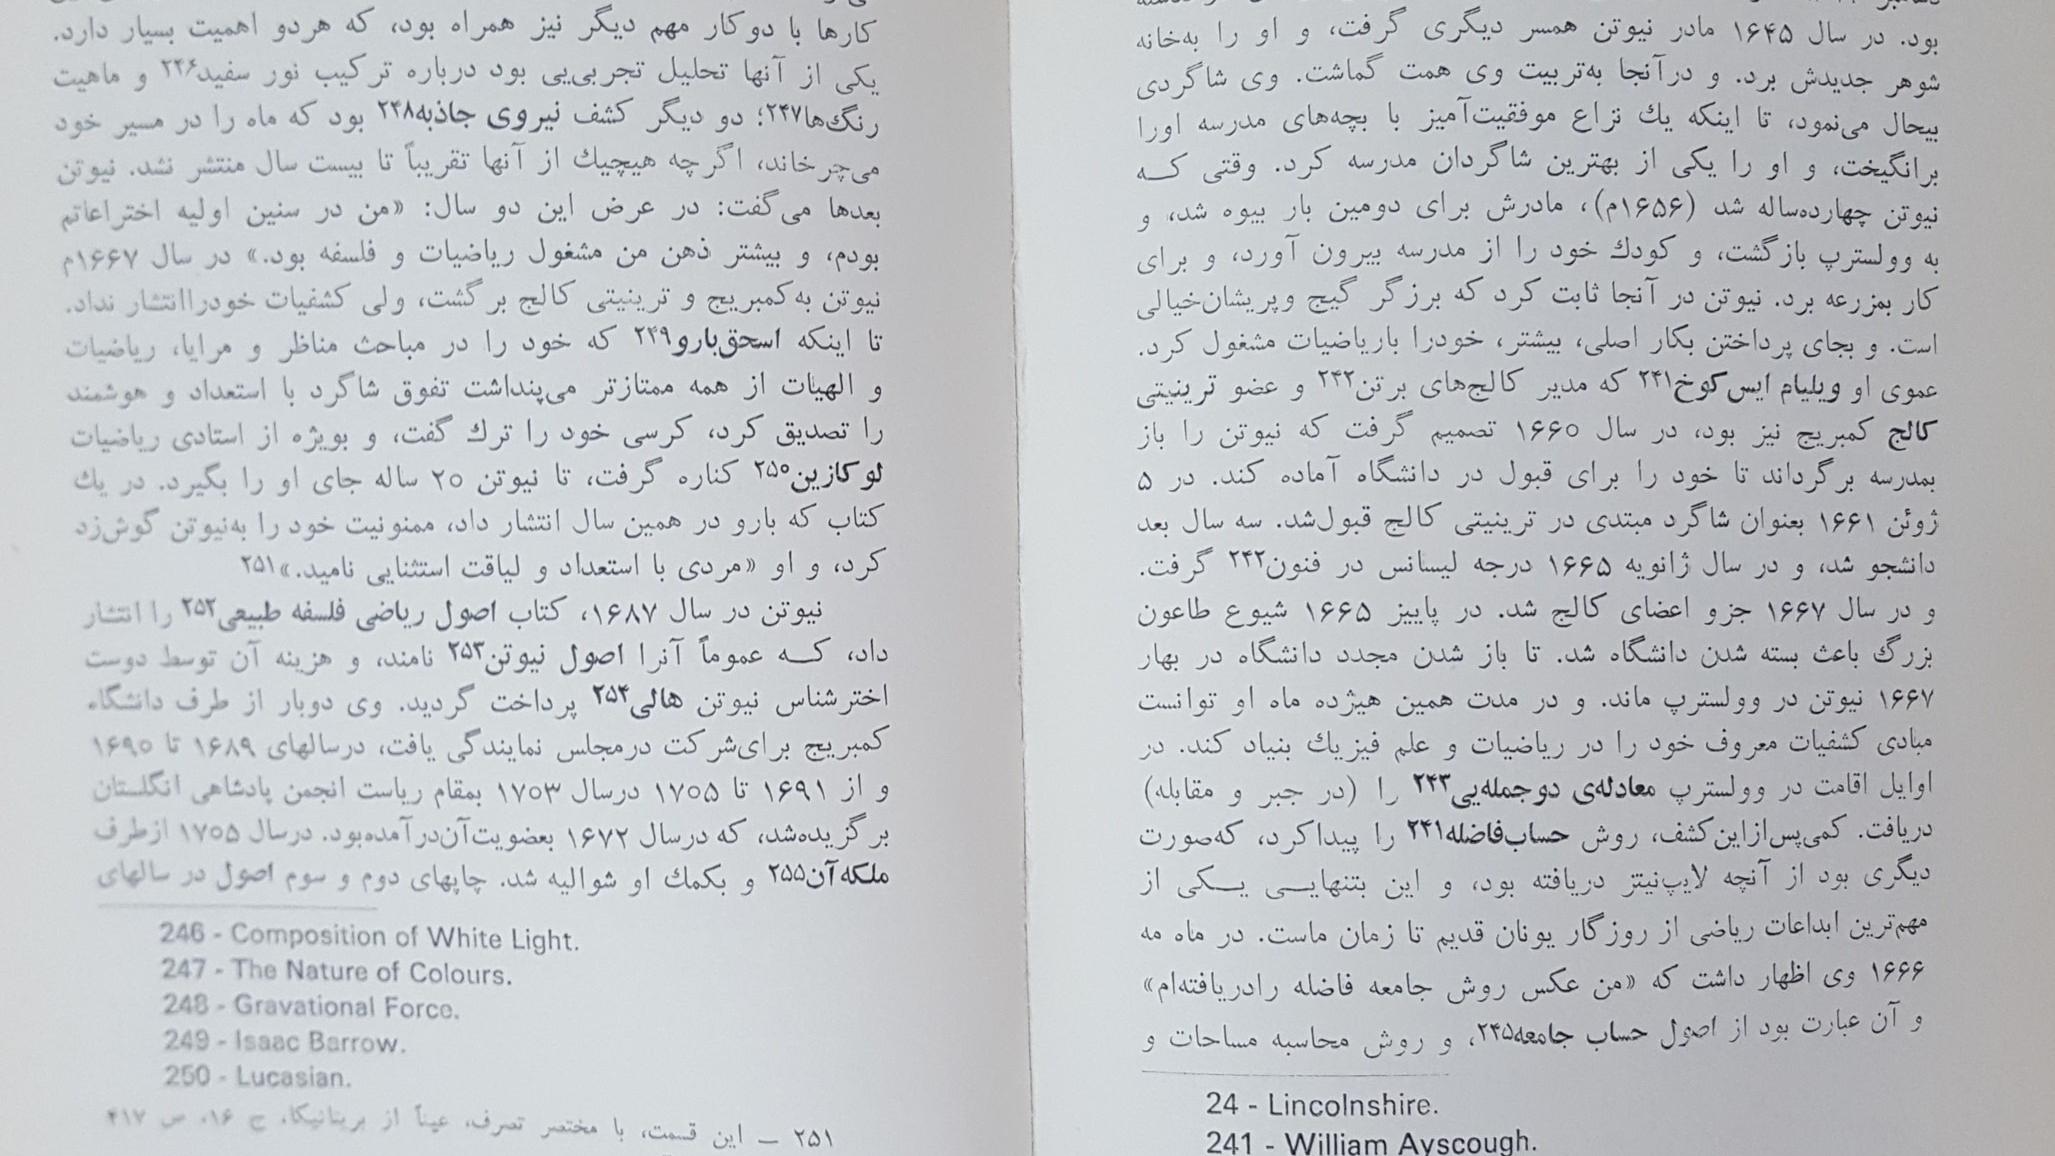 بود. در سال ۱۶۴۵ مادر نیوتن همسر دیگری گرفت، و او را به‌خانه
شوهر جدیدش برد. و درآنجا به‌تربیت وی همت گماشت. وی شاگردی
بیحال می‌نمود، تا اینکه یك نزاع موفقیت‌آمیز با بچه‌های مدرسه اورا
برانگیخت، و او را یکی از بهترین شاگردان مدرسه کرد. وقتی کـه
نیوتن چهارده‌ساله شد (۱۶۵۶م)، مادرش برای دومین بار بیوه شد، و
به وولسترپ بازگشت، و کودك خود را از مدرسه بیرون آورد، و برای
کار بمزرعه برد. نیوتن در آنجا ثابت کرد که برزگر گیج وپریشان‌خیالی
است. و بجای پرداختن بکار اصلی، بیشتر، خودرا باریاضیات مشغول کرد.
عموی او ویلیام ایس‌کوخ۲۴۱ که مدیر کالج‌های برتن۲۴۲ و عضو ترینیتی
کالج کمبریج نیز بود، در سال ۱۶۶۰ تصمیم گرفت که نیوتن را باز
بمدرسه برگرداند تا خود را برای قبول در دانشگاه آماده کند. در ۵
ژوئن ۱۶۶۱ بعنوان شاگرد مبتدی در ترینیتی کالج قبول‌شد. سه سال بعد
دانشجو شد، و در سال ژانویه ۱۶۶۵ درجه لیسانس در فنون۲۴۲ گرفت.
و در سال ۱۶۶۷ جزو اعضای کالج شد. در پاییز ۱۶۶۵ شیوع طاعون
بزرگ باعث بسته شدن دانشگاه شد. تا باز شدن مجدد دانشگاه در بهار
۱۶۶۷ نیوتن در وولسترپ ماند. و در مدت همین هیژده ماه او توانست
مبادی کشفیات معروف خود را در ریاضیات و علم فیزیك بنیاد کند. در
اوایل اقامت در وولسترپ معادله‌ی دوجمله‌یی۲۴۳ را (در جبر و مقابله)
دریافت. کمی‌پس‌ازاین‌کشف، روش حساب‌فاضله۲۴۱ را پیداکرد، که‌صورت
دیگری بود از آنچه لایپ‌نیتز دریافته بود، و این بتنهایـی یـکی از
مهم‌ترین ابداعات ریاضی از روزگار یونان قدیم تا زمان ماست. در ماه مه
۱۶۶۶ وی اظهار داشت که «من عکس روش جامعه فاضله رادریافته‌ام»
و آن عبارت بود از اصول حساب جامعه۲۴۵، و روش محاسبه مساحات و
24 - Lincolnshire.
241 - William Ayscough.
کارها با دوکار مهم دیگر نیز همراه بود، که هردو اهمیت بسیار دارد.
یکی از آنها تحلیل تجربی‌یی بود درباره ترکیب نور سفید۲۴۶ و ماهیت
رنگ‌ها۲۴۷؛ دو دیگر کشف نیروی جاذبه۲۴۸ بود که ماه را در مسیر خود
می‌چرخاند، اگرچه هیچیك از آنها تقریباً تا بیست سال منتشر نشد. نیوتن
بعدها می‌گفت: در عرض این دو سال: «من در سنین اولیه اختراعاتم
بودم، و بیشتر ذهن من مشغول ریاضیات و فلسفه بود.» در سال ۱۶۶۷م
نیوتن به‌کمبریج و ترینیتی کالج برگشت، ولی کشفیات خودراانتشار نداد.
تا اینکه اسحق‌بارو۲۴۹ که خود را در مباحث مناظر و مرایا، ریاضیات
و الهیات از همه ممتازتر می‌پنداشت تفوق شاگرد با استعداد و هوشمند
را تصدیق کرد، کرسی خود را ترك گفت، و بویژه از استادی ریاضیات
لوکازین۲۵۰ کناره گرفت، تا نیوتن ۲۰ ساله جای او را بگیرد. در یك
کتاب که بارو در همین سال انتشار داد، ممنونیت خود را به‌نیوتن گوش‌زد
کرد، و او «مردی با استعداد و لیاقت استثنایی نامید.»۲۵۱
نیوتن در سال ۱۶۸۷، کتاب اصول ریاضی فلسفه طبیعی۲۵۲ را انتشار
داد، کـه عموماً آنرا اصول نیوتن۲۵۳ نامند، و هزینه آن توسط دوست
اخترشناس نیوتن هالی۲۵۴ پرداخت گردید. وی دوبار از طرف دانشگاه
کمبریج برای‌شرکت درمجلس نمایندگی یافت، درسالهای ۱۶۸۹ تا ۱۶۹۰
و از ۱۶۹۱ تا ۱۷۰۵ درسال ۱۷۰۳ بمقام ریاست انجمن پادشاهی انگلستان
برگزیده‌شد، که درسال ۱۶۷۲ بعضویت‌آن‌درآمده‌بود. درسال ۱۷۰۵ ازطرف
ملکه‌آن۲۵۵ و بکمك او شوالیه شد. چاپهای دوم و سوم اصول در سالهای
246 - Composition of White Light.
247 - The Nature of Colours.
248 - Gravational Force.
249 - Isaac Barrow.
250 - Lucasian.
۲۵۱ – این قسمت، با مختصر تصرف، عیناً از بریتانیکا، ج ۱۶، ص ۴۱۷